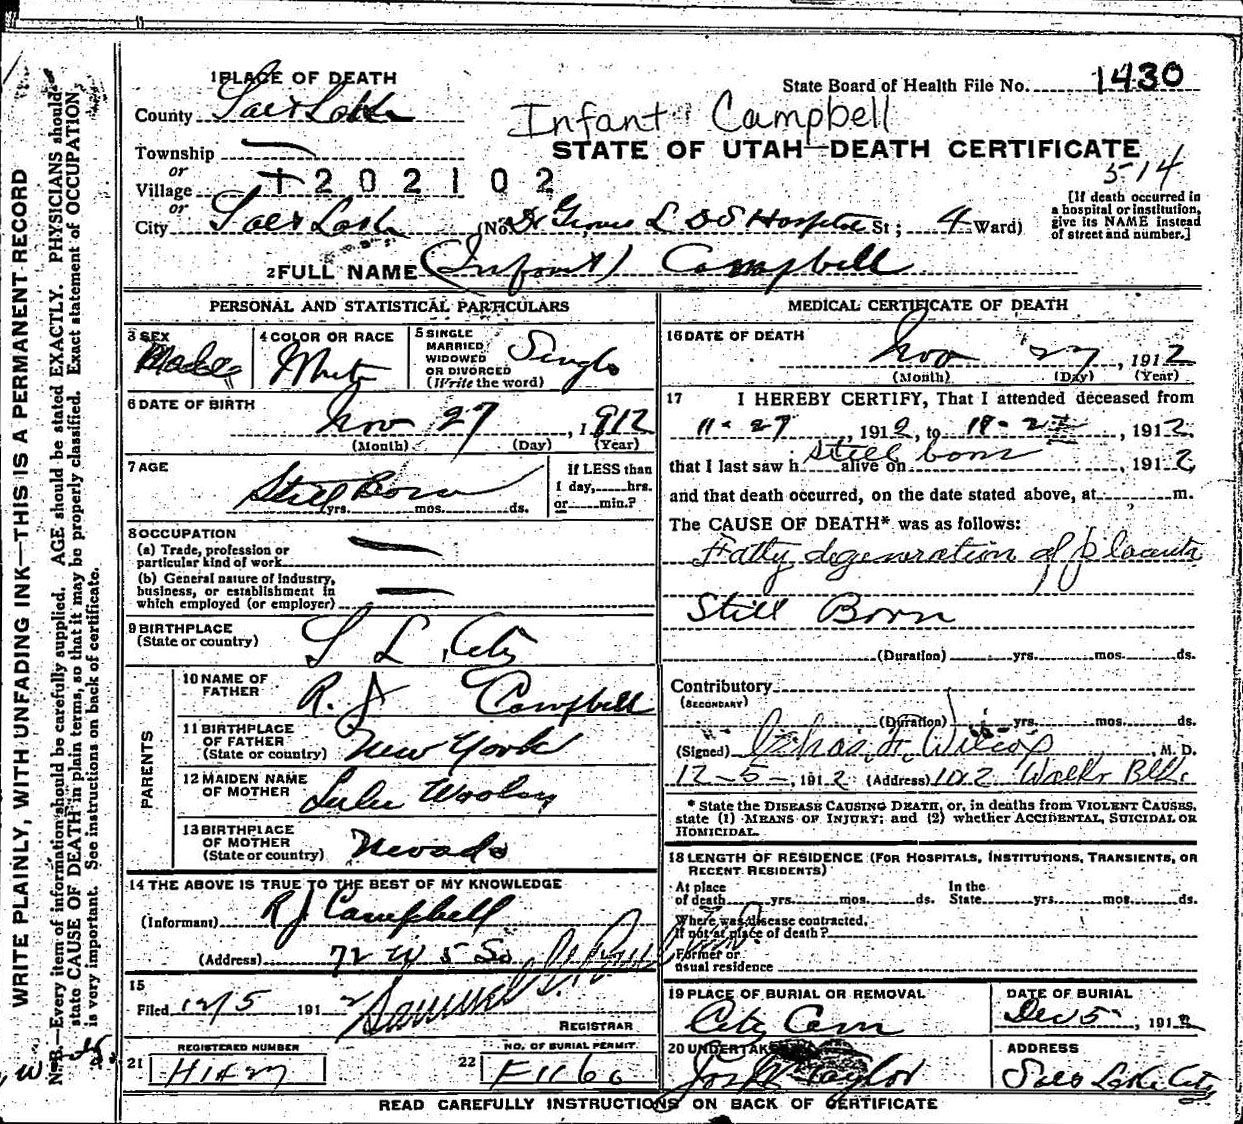 1 PLACE OF DEATH
State Board of Health File No. 1430
County Salt Lake
Infant Campbell
Township
STATE OF UTAH—DEATH CERTIFICATE
or
5-14
Village 1202102
or
City Salt Lake (No. Dr Groves L D S Hospital St; 4 Ward)
[If death occurred in
a hospital or institution,
give its NAME instead
of street and number.]
2 FULL NAME (Infant) Campbell
PERSONAL AND STATISTICAL PARTICULARS
3 SEX
4 COLOR OR RACE White
5 SINGLE
MARRIED
WIDOWED
OR DIVORCED
(Write the word)
Single
6 DATE OF BIRTH
Nov 27, 1912
(Month) (Day) (Year)
7 AGE
Still Born
yrs. mos. ds.
If LESS than
1 day, hrs.
or min.?
8 OCCUPATION
(a) Trade, profession or
particular kind of work
(b) General nature of industry,
business, or establishment in
which employed (or employer)
9 BIRTHPLACE
(State or country)
S L City
PARENTS
10 NAME OF
FATHER
R. J Campbell
11 BIRTHPLACE
OF FATHER
(State or country)
New York
12 MAIDEN NAME
OF MOTHER
Lulu Wooley
13 BIRTHPLACE
OF MOTHER
(State or country)
Nevada
14 THE ABOVE IS TRUE TO THE BEST OF MY KNOWLEDGE
(Informant) R J Campbell
(Address) 72 W 5 So
15
Filed 12/5 1912 Samuel
REGISTRAR
REGISTERED NUMBER
21
NO. OF BURIAL PERMIT
22
MEDICAL CERTIFICATE OF DEATH
16 DATE OF DEATH
Nov 27, 1912
(Month) (Day) (Year)
17 I HEREBY CERTIFY, That I attended deceased from
11-27, 1912, to 11-27, 1912,
that I last saw h still born alive on, 1912,
and that death occurred, on the date stated above, at m.
The CAUSE OF DEATH* was as follows:
Fatty degeneration of placenta
Still Born
(Duration) yrs. mos. ds.
Contributory
(SECONDARY)
(Duration) yrs. mos. ds.
(Signed) Chas F Wilcox, M. D.
12-5-, 1912 (Address) 102 Walkr Blk.
* State the DISEASE CAUSING DEATH, or, in deaths from VIOLENT CAUSES,
state (1) MEANS OF INJURY; and (2) whether ACCIDENTAL, SUICIDAL OR
HOMICIDAL.
18 LENGTH OF RESIDENCE (FOR HOSPITALS, INSTITUTIONS, TRANSIENTS, OR
RECENT RESIDENTS)
At place
of death yrs. mos. ds.
In the
State yrs. mos. ds.
Where was disease contracted,
If not at place of death?
Former or
usual residence
19 PLACE OF BURIAL OR REMOVAL
City Cem
DATE OF BURIAL
Dec 5, 1912
20 UNDERTAKER
Taylor
ADDRESS
Salt Lake City
READ CAREFULLY INSTRUCTIONS ON BACK OF CERTIFICATE
WRITE PLAINLY, WITH UNFADING INK—THIS IS A PERMANENT RECORD
N. B.—Every item of information should be carefully supplied. AGE should be stated EXACTLY. PHYSICIANS should
state CAUSE OF DEATH in plain terms, so that it may be properly classified. Exact statement of OCCUPATION
is very important. See instructions on back of certificate.